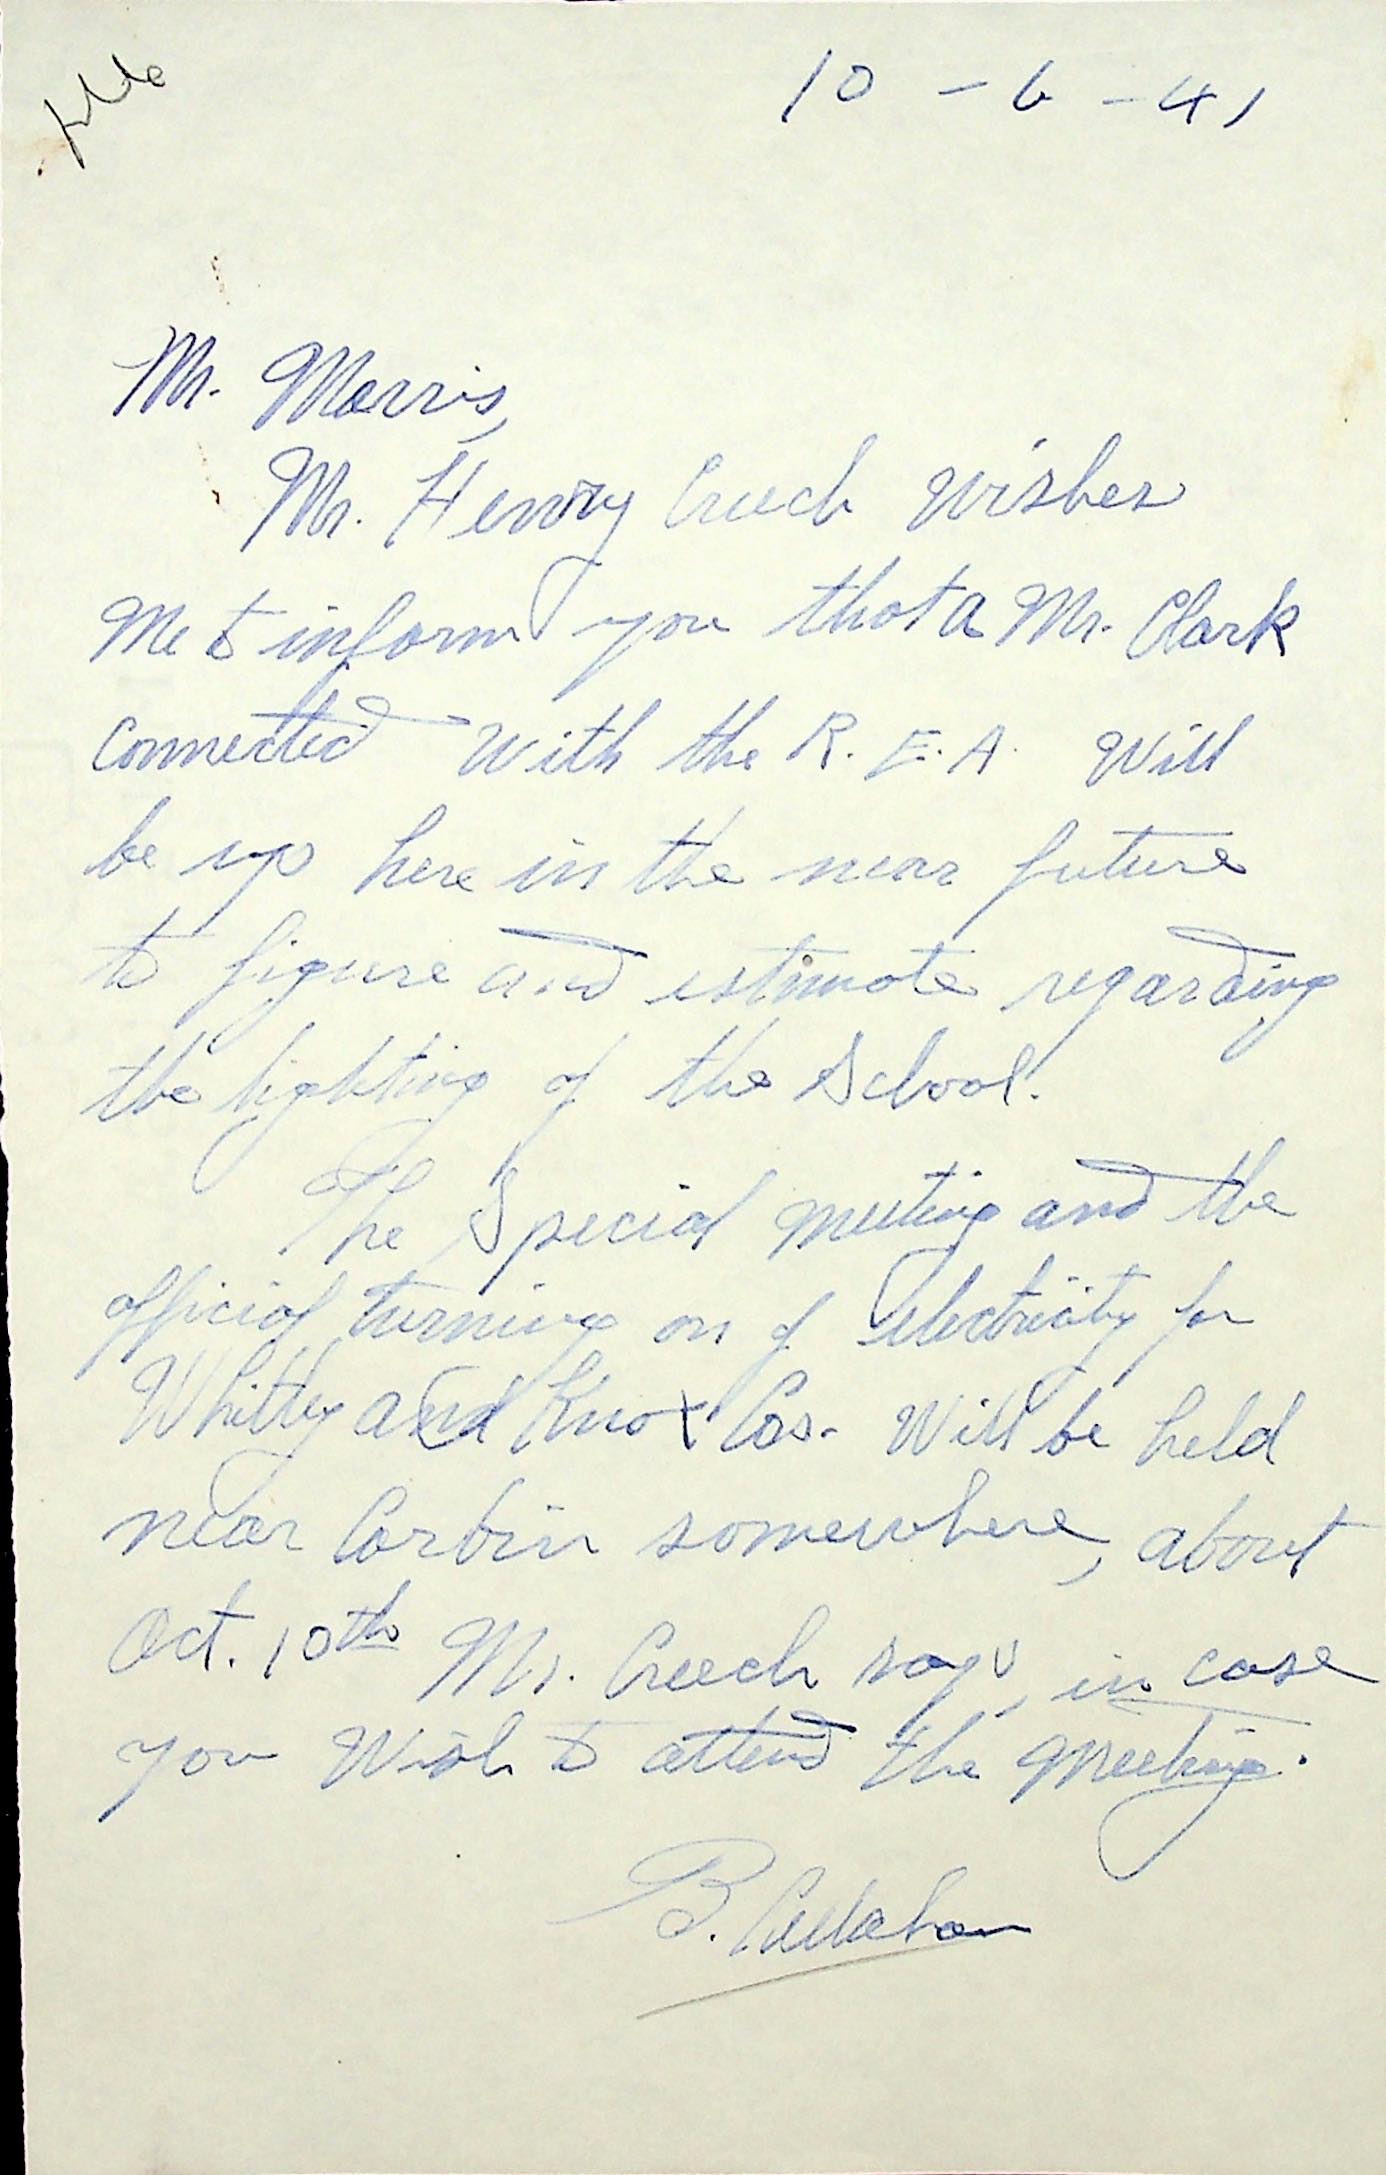 10-6-41
Mr. Morris,
Mr. Henry Creech Wishes
Me to inform you that a Mr. Clark
Connected With the R.E.A. Will
be up here in the near future
to figure and estimate regarding
the lighting of the School.
The Special meeting and the
official turning on of electricity for
Whitley and Knox Cos. Will be held
near Corbin somewhere, about
Oct. 10th Mr. Creech says, in case
you Wish to attend the Meeting.
B. Callahan